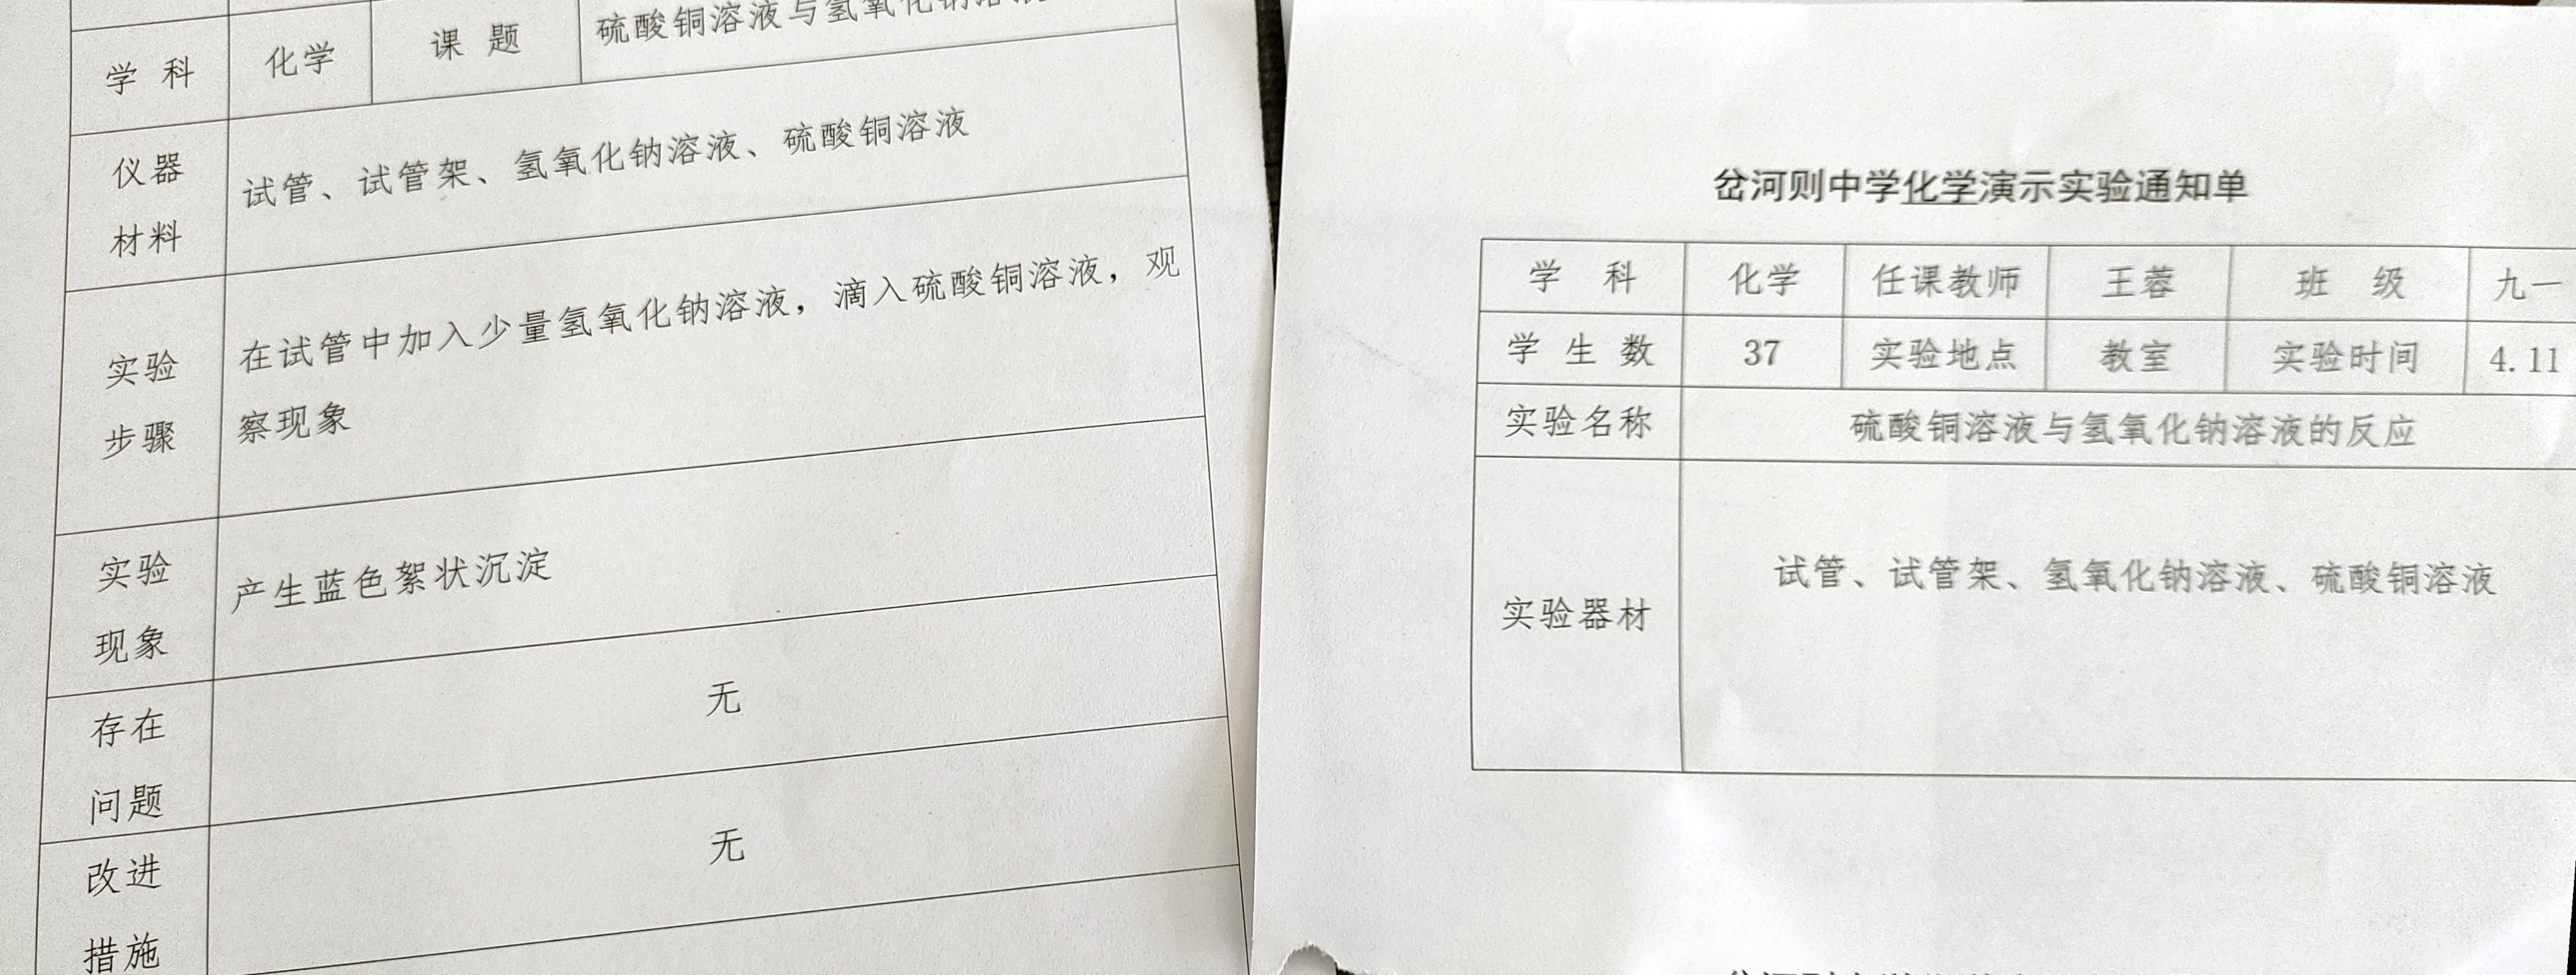 学 科 化学 课 题 硫酸铜溶液与氢氧化钠溶液
仪器
材料
试管、试管架、氢氧化钠溶液、硫酸铜溶液
实验
步骤
在试管中加入少量氢氧化钠溶液，滴入硫酸铜溶液，观
察现象
实验
现象
产生蓝色絮状沉淀
存在
问题
无
改进
措施
无
岔河则中学化学演示实验通知单
学 科 化学 任课教师 王蓉 班 级 九一
学 生 数 37 实验地点 教室 实验时间 4.11
实验名称 硫酸铜溶液与氢氧化钠溶液的反应
实验器材 试管、试管架、氢氧化钠溶液、硫酸铜溶液